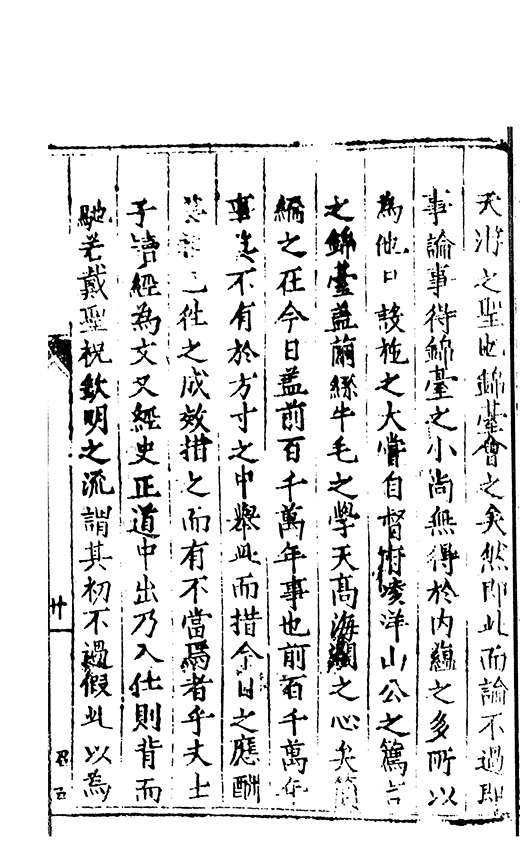 天游之聖也錦䑓會之矣然即此而論不過即
事論事待錦䑓之小尚無得於内蘊之多所以
為他日設施之大嘗自督府凌洋山公之篤言
之錦䑓蓋繭絲牛毛之學天高海濶之心矣簡
編之在今日蓋前百千萬年事也前百千萬年
事其不有於方寸之中舉此而措今日之應酬
已徃之成效措之而有不當焉者乎夫士
子讀經為文又經史正道中出乃入仕則背而
馳若戴聖祝欽明之流謂其初不過假此以為